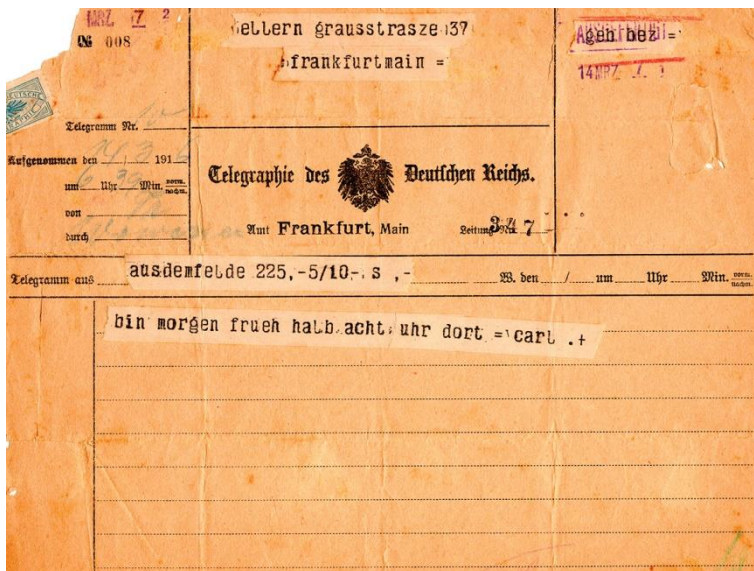 MRZ 17 2
008
oellern grausstrasze 37
frankfurtmain =
geh bez =
14 MRZ
Telegramm Nr.
Aufgenommen den / 3 1916
um Uhr 30 Min. vorm. nachm.
von
durch
Telegraphie des Deutschen Reichs.
Amt Frankfurt, Main
Leitung Nr. 347
Telegramm aus ausdemfelde 225,-5/10-.s ,- W. den / um Uhr Min. vorm. nachm.
bin morgen frueh halb acht uhr dort = carl .+